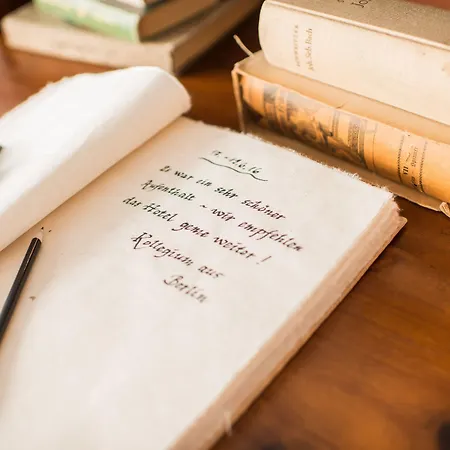 Es war ein sehr schöner
Aufenthalt ~ wir empfehlen
das Hotel gerne weiter!
Kollegium aus
Berlin